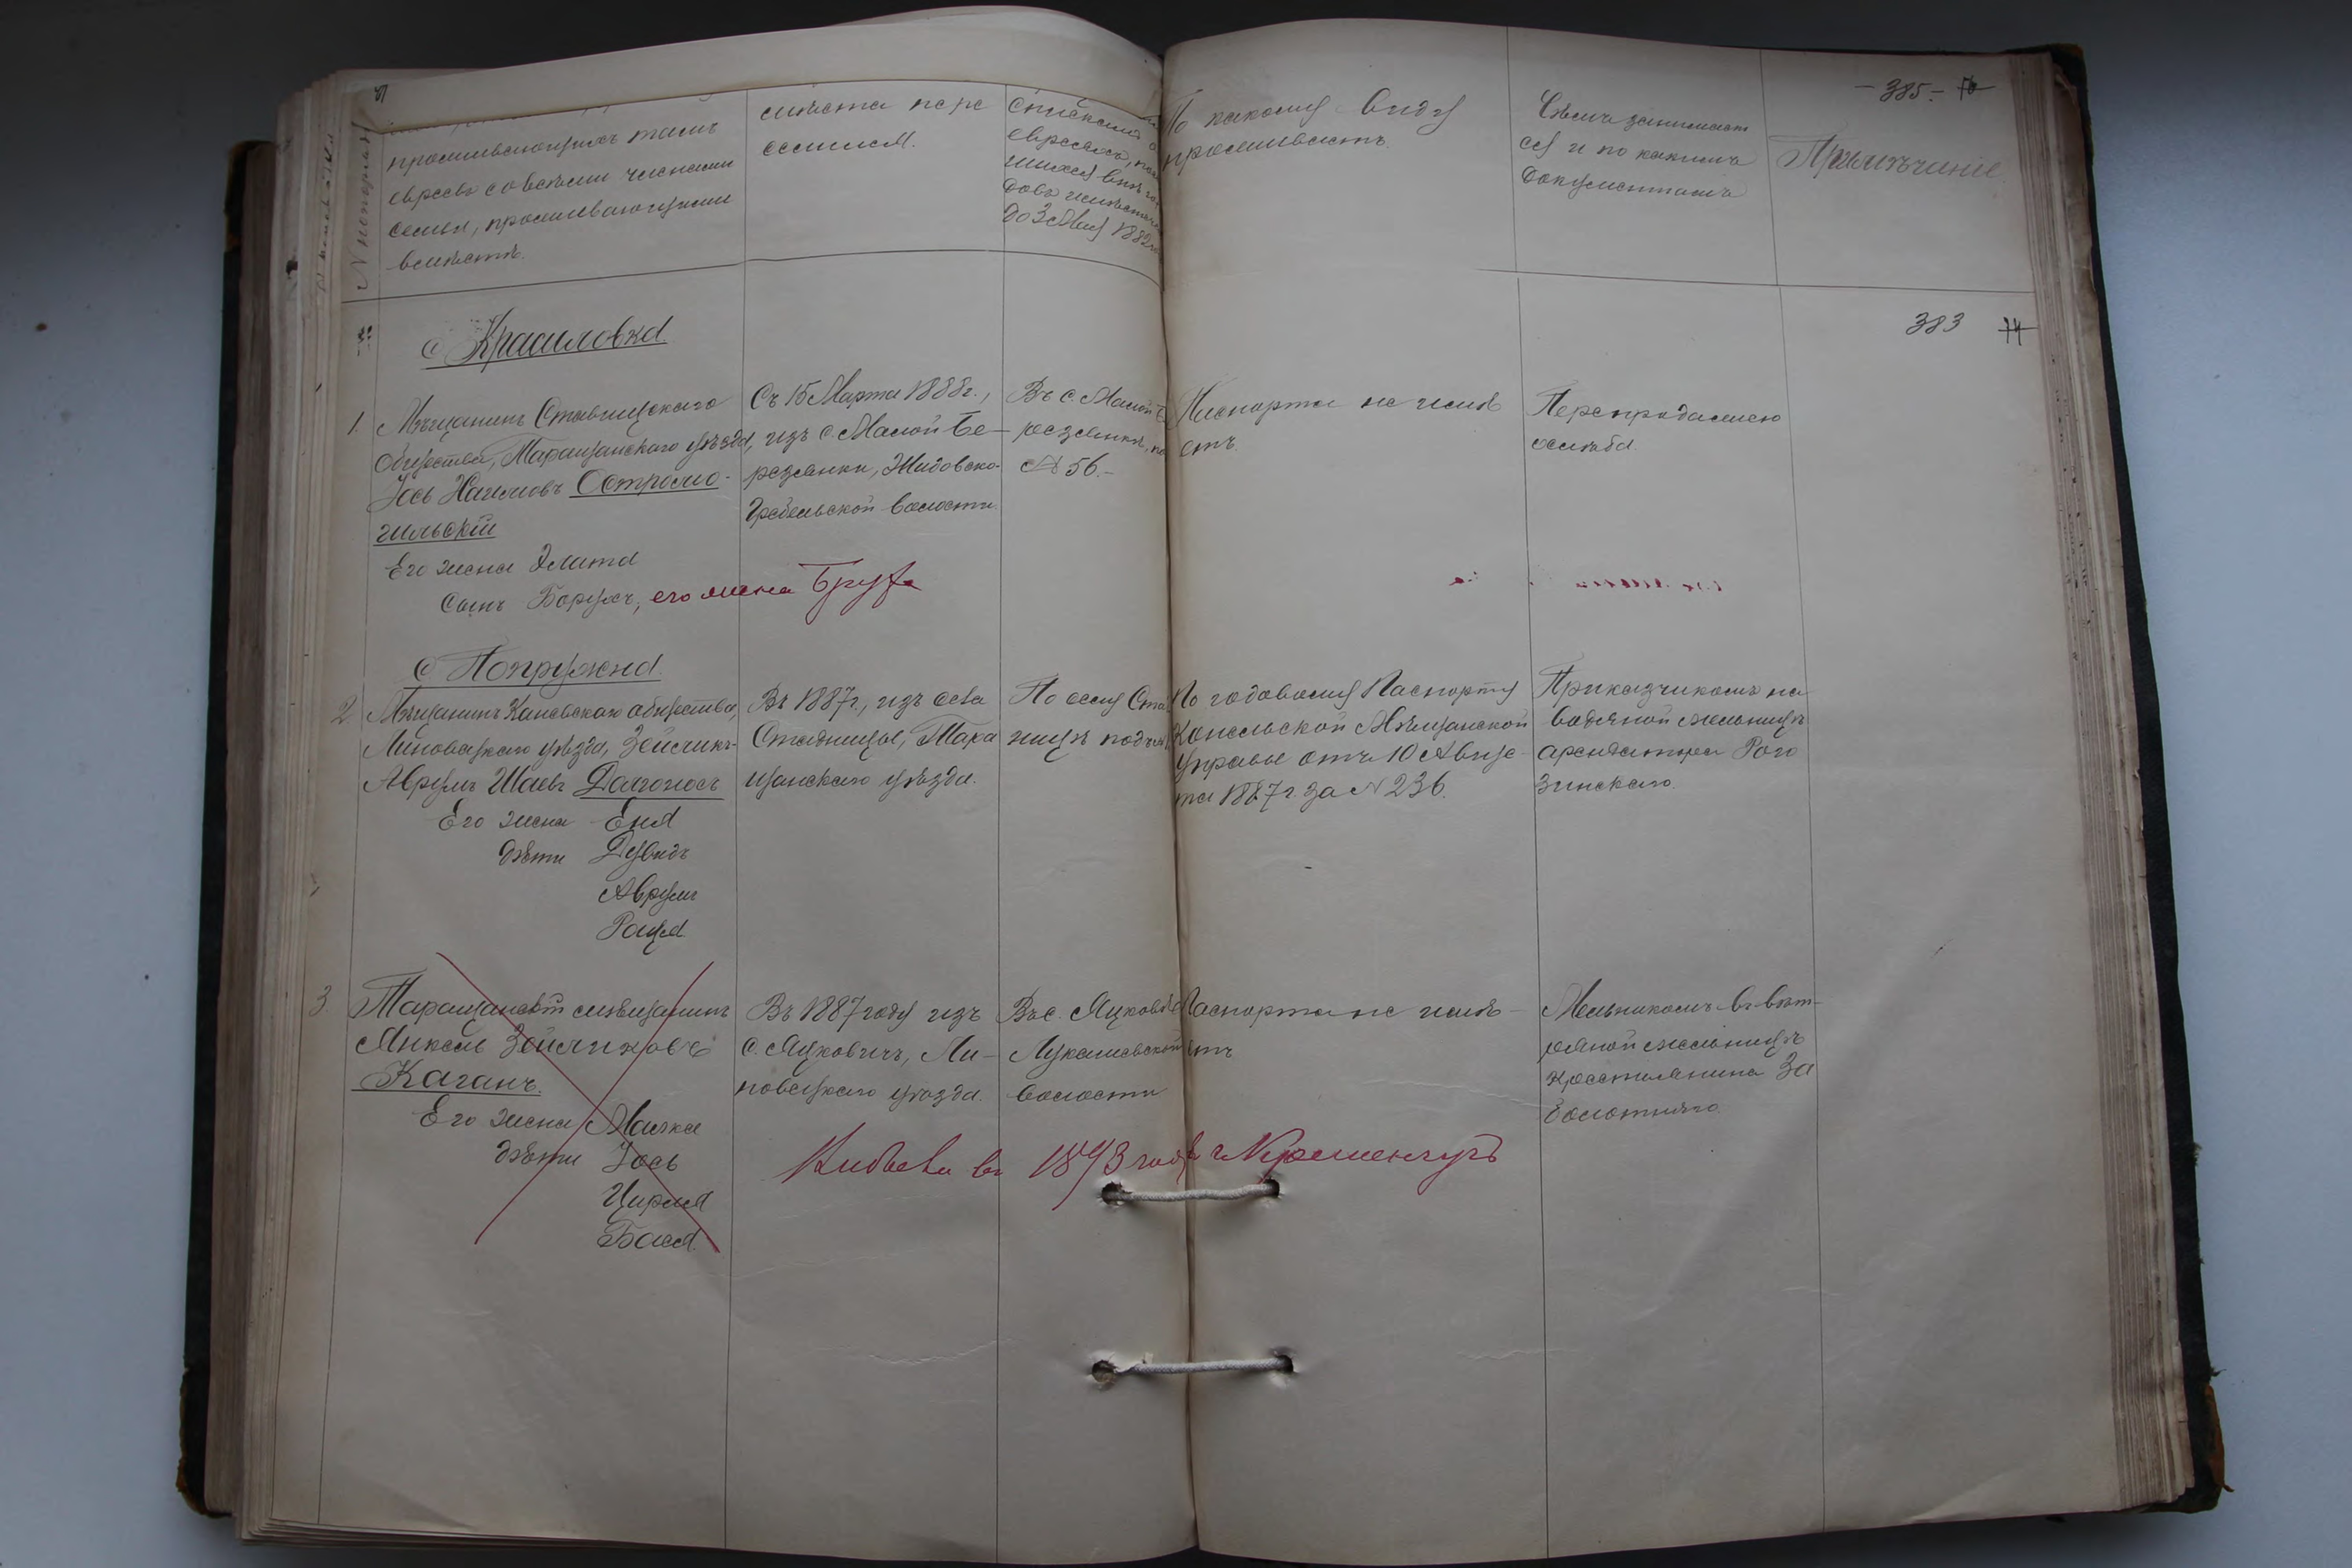 № по порядку
проживающихъ тамъ
евреевъ со всѣми членами
семьи, проживающими
вмѣстѣ.
мѣста пере
селился.
спискамъ о
евреяхъ,
шихся внѣ го
довъ и мѣстеч
до 3 Мая 1882 г.
По какому виду
проживаетъ.
Чѣмъ занимает
ся и по какимъ
документамъ
Примѣчаніе.
- 385. -
383
с Красиловка
1. Мѣщанинъ Ставищскаго
общества, Таращанскаго уѣзда,
Іось Нагимовъ Остромо-
гильскій
Его жена Злата
Сынъ Борухъ, его жена Бруха
Съ 15 Марта 1888 г.,
изъ с. Малой Бе-
резянки, Жидовско-
Гребельской волости.
Въ с. Малой Бе
резянкѣ, по
№ 56.-
Паспорта не имѣ
етъ.
Перепродажею
хлѣба.
с Попружна.
2 Мѣщанинъ Каневскаго общества,
Липовецкаго уѣзда, Зейликъ-
Аврумъ Шаевъ Долгоносъ
Его жена Еня
дѣти Дувидъ
Аврумъ
Рося
Въ 1887 г., изъ села
Стадницы, Тара
щанскаго уѣзда.
По селу Ста
ницѣ подъ №
По годовому Паспорту
Кансельской Мѣщанской
Управы отъ 10 Авгус-
та 1887 г. за № 236.
Приказчикомъ на
водяной мельницѣ
арендатора Рого
зинскаго.
3. Таращанскій мѣщанинъ
Янкель Зейликовъ
Каганъ.
Его жена Малка
дѣти Іось
Цирля
Бася.
Въ 1887 году изъ
с. Яцковичъ, Ли-
повецкаго уѣзда.
Въ с. Яцков
Лукашевской
волости
Паспорта не имѣ-
етъ
Мельникомъ въ вѣт-
ряной мельницѣ
крестьянина За
болотняго.
Выбыли въ 1893 году г. Кременчугъ